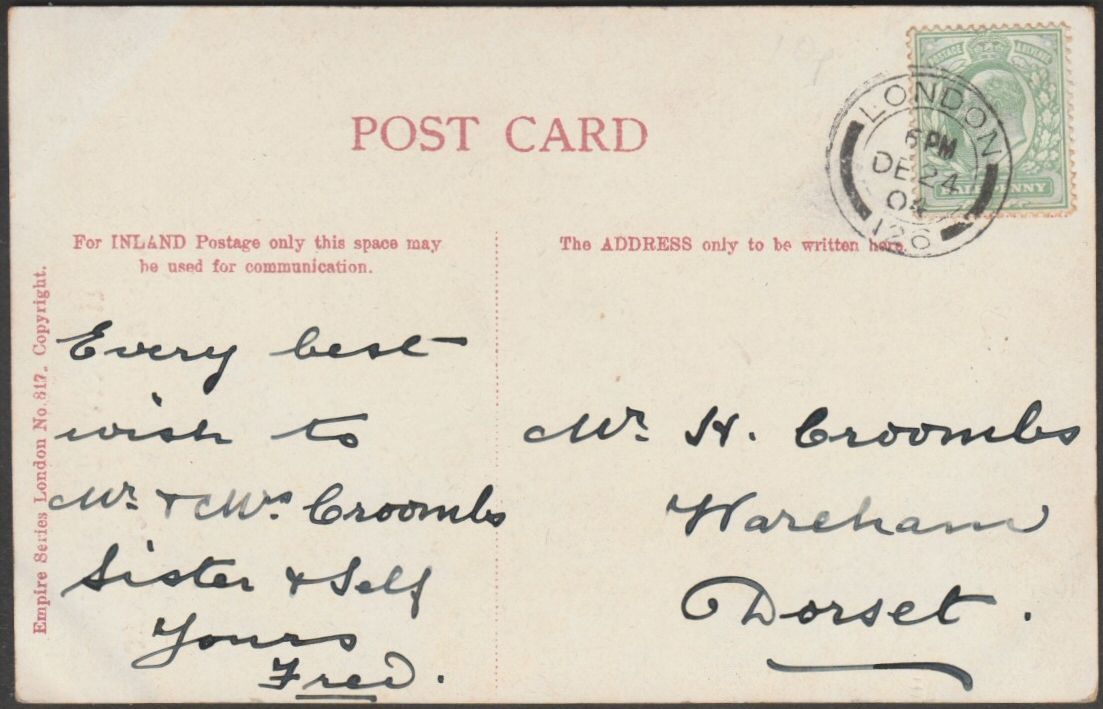 POST CARD
For INLAND Postage only this space may
be used for communication.
The ADDRESS only to be written here.
Empire Series London No. 817. Copyright.
POSTAGE & REVENUE
HALFPENNY
LONDON
6 PM
DE 24
04
126
Every best
wish to
Mr. & Mrs. Croombs
Sister & Self
Yours
Fred.
Mr. H. Croombs
Wareham
Dorset.